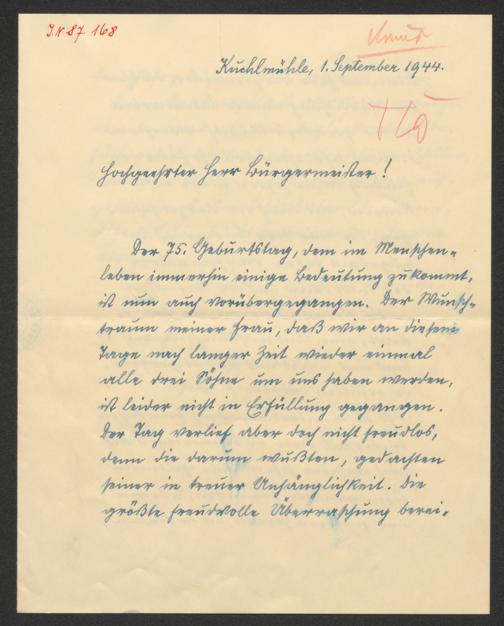 J.N 87 168
Kuchlmühle, 1. September 1944.
Hochgeehrter Herr Bürgermeister!
Der 75. Geburtstag, dem im Menschen-
leben immerhin einige Bedeutung zukommt,
ist nun auch vorübergegangen. Der Wunsch-
traum meiner Frau, daß wir an diesem
Tage nach langer Zeit wieder einmal
alle drei Söhne um uns haben werden,
ist leider nicht in Erfüllung gegangen.
Der Tag verlief aber doch nicht freudlos,
denn die darum wußten, gedachten
seiner in treuer Anhänglichkeit. Die
größte freudvolle Überraschung berei-